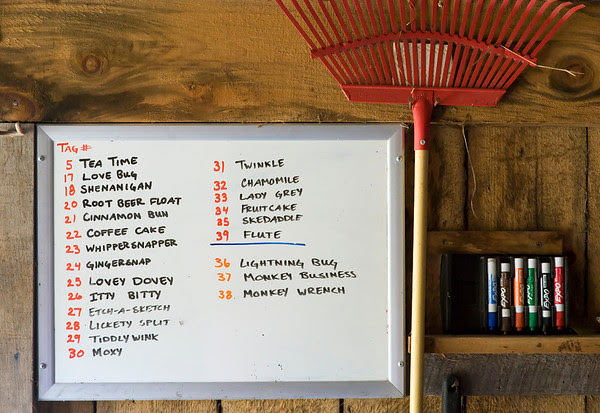 TAG #
5 TEA TIME
17 LOVE BUG
18 SHENANIGAN
20 ROOT BEER FLOAT
21 CINNAMON BUN
22 COFFEE CAKE
23 WHIPPERSNAPPER
24 GINGERSNAP
25 LOVEY DOVEY
26 ITTY BITTY
27 ETCH-A-SKETCH
28 LICKETY SPLIT
29 TIDDLYWINK
30 MOXY
31 TWINKLE
32 CHAMOMILE
33 LADY GREY
34 FRUITCAKE
35 SKEDADDLE
39 FLUTE
36 LIGHTNING BUG
37 MONKEY BUSINESS
38 MONKEY WRENCH
EXPO
EXPO